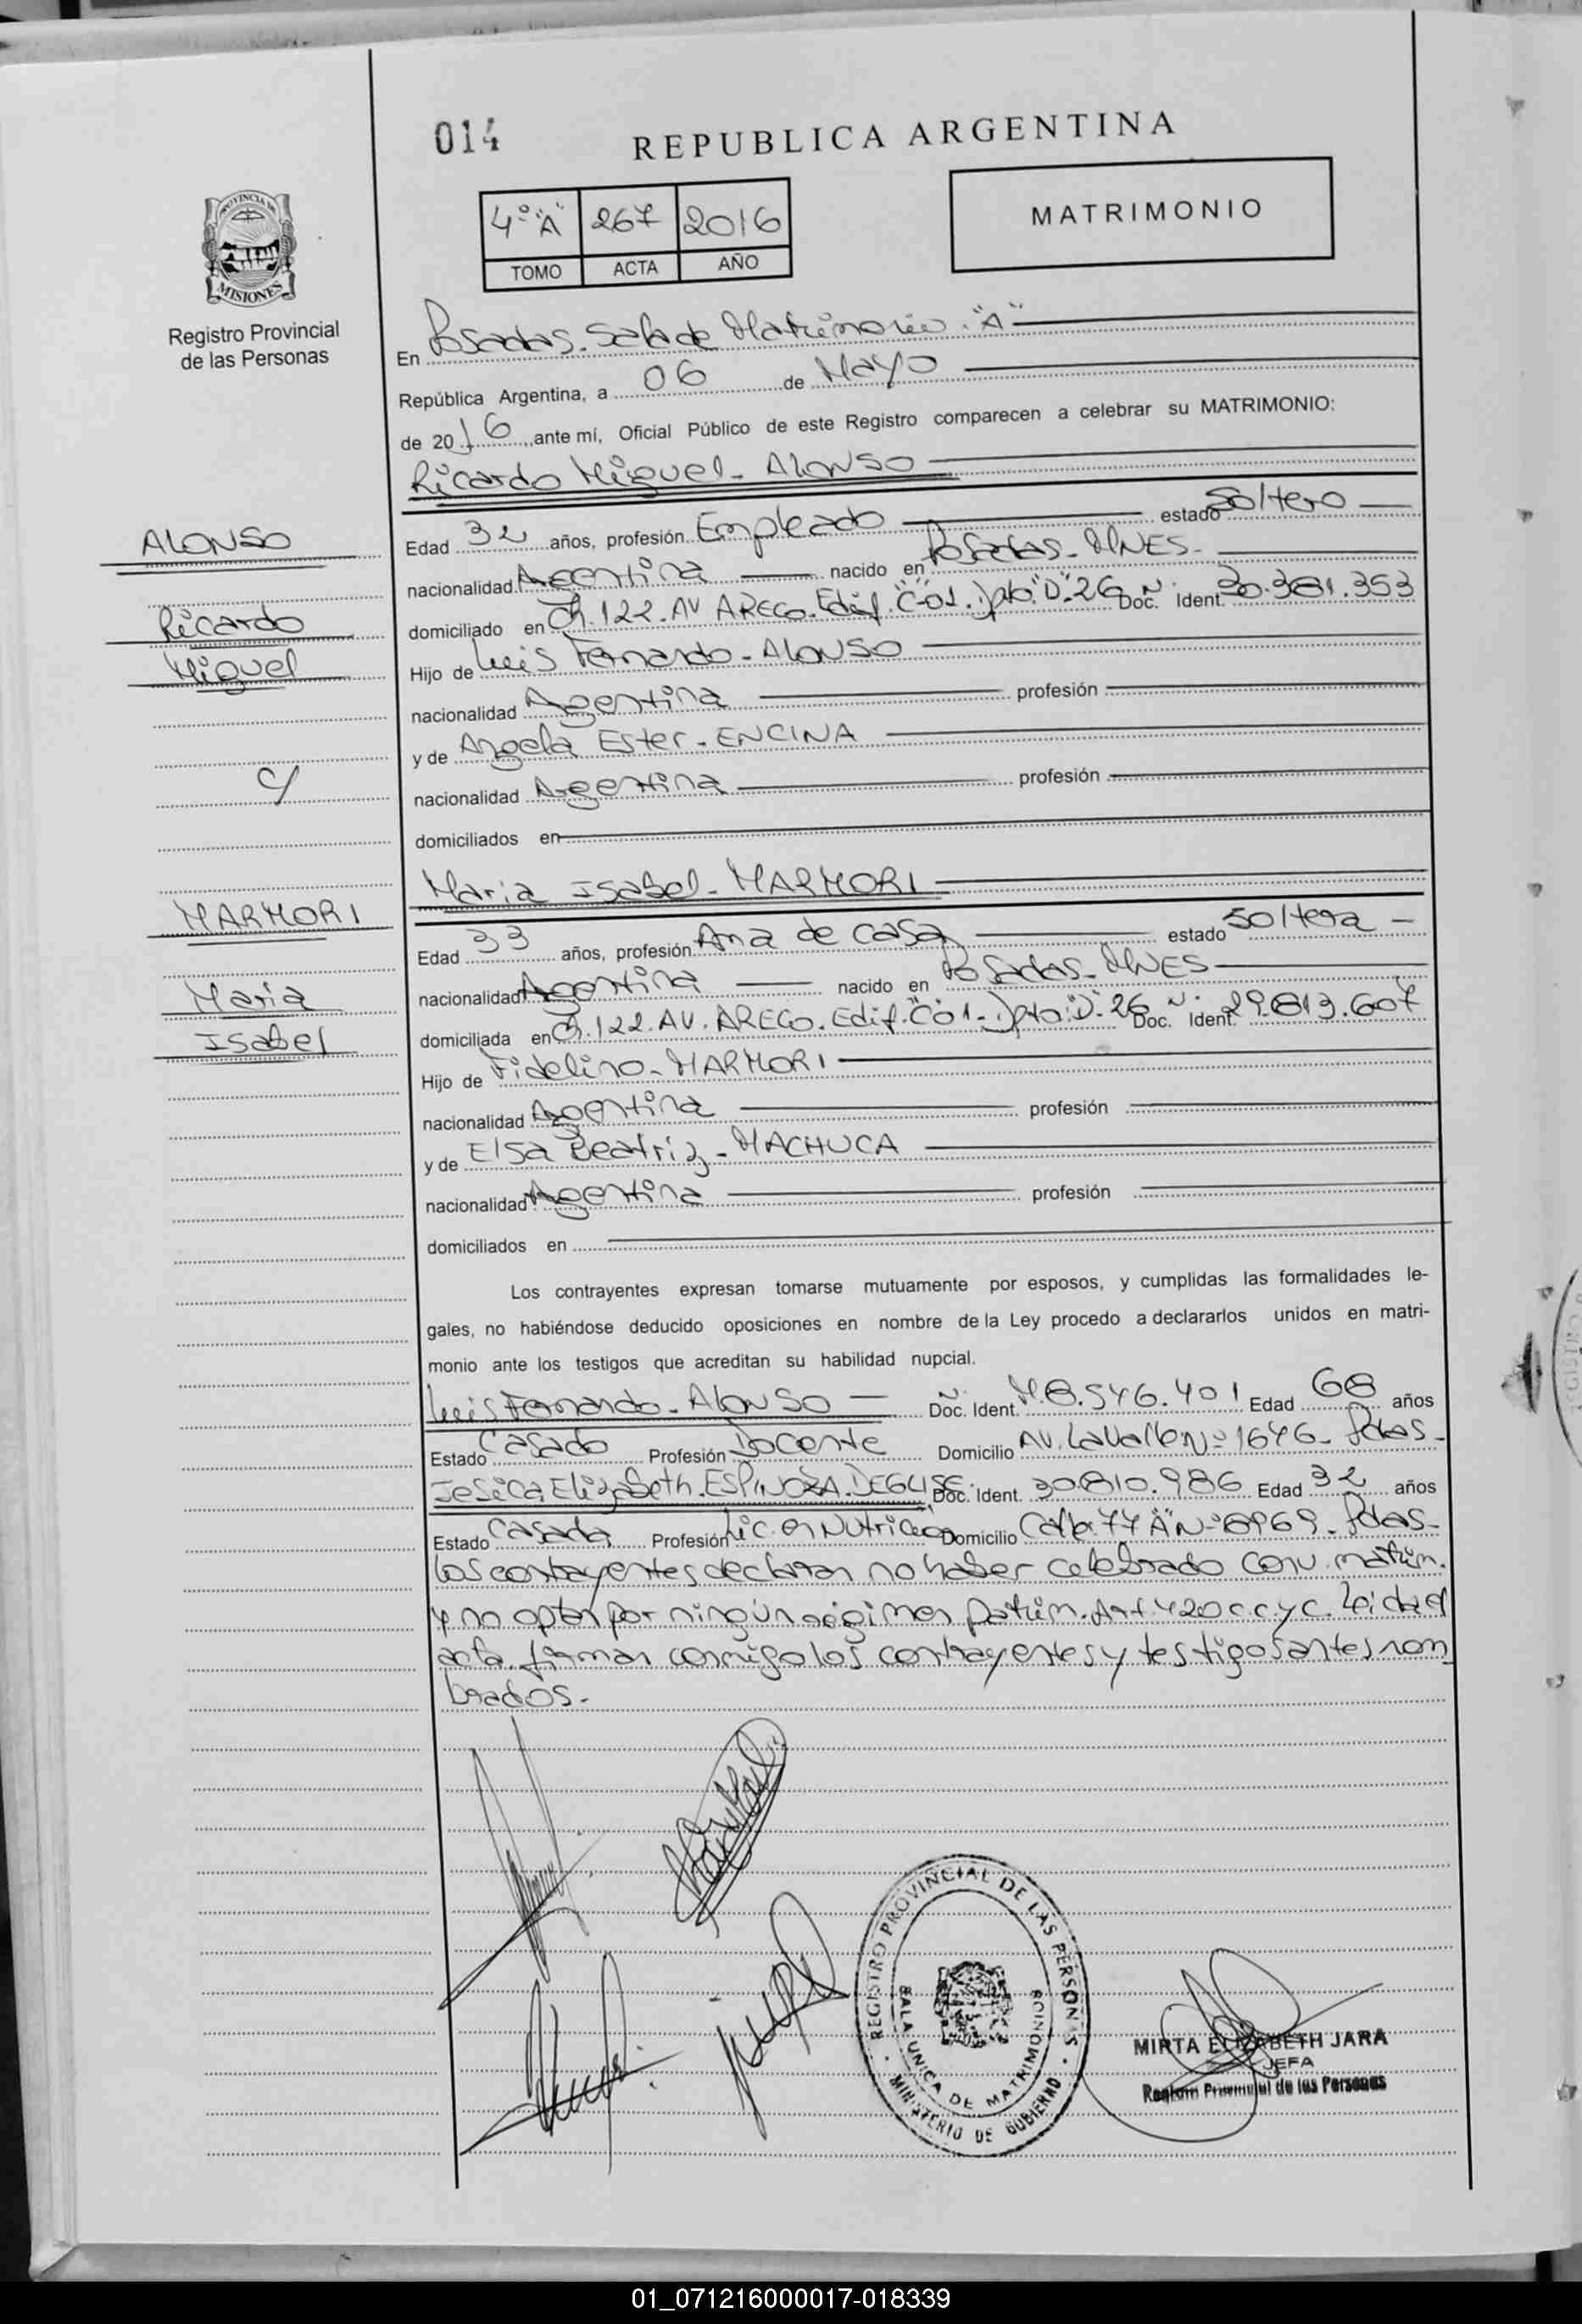 014
REPUBLICA ARGENTINA
4º "A" 267 2016
TOMO ACTA AÑO
MATRIMONIO
PROVINCIA DE
MISIONES
Registro Provincial
de las Personas
En Posadas. Sala de Matrimonio "A"
República Argentina, a 06 de Mayo
de 2016, ante mí, Oficial Público de este Registro comparecen a celebrar su MATRIMONIO:
Ricardo Miguel - ALONSO
ALONSO
Ricardo
Miguel
c/
Edad 32 años, profesión Empleado estado Soltero
nacionalidad Argentina nacido en Posadas - MNES -
domiciliado en Ch. 122. AV ARECO. Edif. "C"01. Dpto. "D". 26 Doc. Ident. Nº 30.381.353
Hijo de Luis Fernando - ALONSO
nacionalidad Argentina profesión
y de Angela Ester - ENCINA
nacionalidad Argentina profesión
domiciliados en
Maria Isabel - MARMORI
MARMORI
Maria
Isabel
Edad 33 años, profesión Ama de casa estado Soltera
nacionalidad Argentina nacido en Posadas - MNES
domiciliada en Ch. 122. AV. ARECO. Edif. "C"01. Dpto. "D". 26 Doc. Ident. Nº 29.813.607
Hijo de Fidelino - MARMORI
nacionalidad Argentina profesión
y de Elsa Beatriz - MACHUCA
nacionalidad Argentina profesión
domiciliados en
Los contrayentes expresan tomarse mutuamente por esposos, y cumplidas las formalidades le-
gales, no habiéndose deducido oposiciones en nombre de la Ley procedo a declararlos unidos en matri-
monio ante los testigos que acreditan su habilidad nupcial.
Luis Fernando - ALONSO Doc. Ident. Nº M.8.546.401 Edad 68 años
Estado Casado Profesión Docente Domicilio AV. Lavalle Nº 1646 - Pdas -
Jesica Elizabeth. ESPINOZA. DEGLISE. Doc. Ident. 30.810.986 Edad 32 años
Estado Casada Profesión Lic. en Nutrición Domicilio Calle 77 "A" Nº 6969 - Pdas -
Los contrayentes declaran no haber celebrado conv. matrim.
y no optan por ningún régimen patrim. Art. 420 c.c.y c. Leída el
acta firman conmigo los contrayentes y testigos antes nom
brados.-
REGISTRO PROVINCIAL DE LAS PERSONAS
SALA UNICA DE MATRIMONIOS
MINISTERIO DE GOBIERNO
MIRTA ELIZABETH JARA
JEFA
Registro Provincial de las Personas
01_071216000017-018339